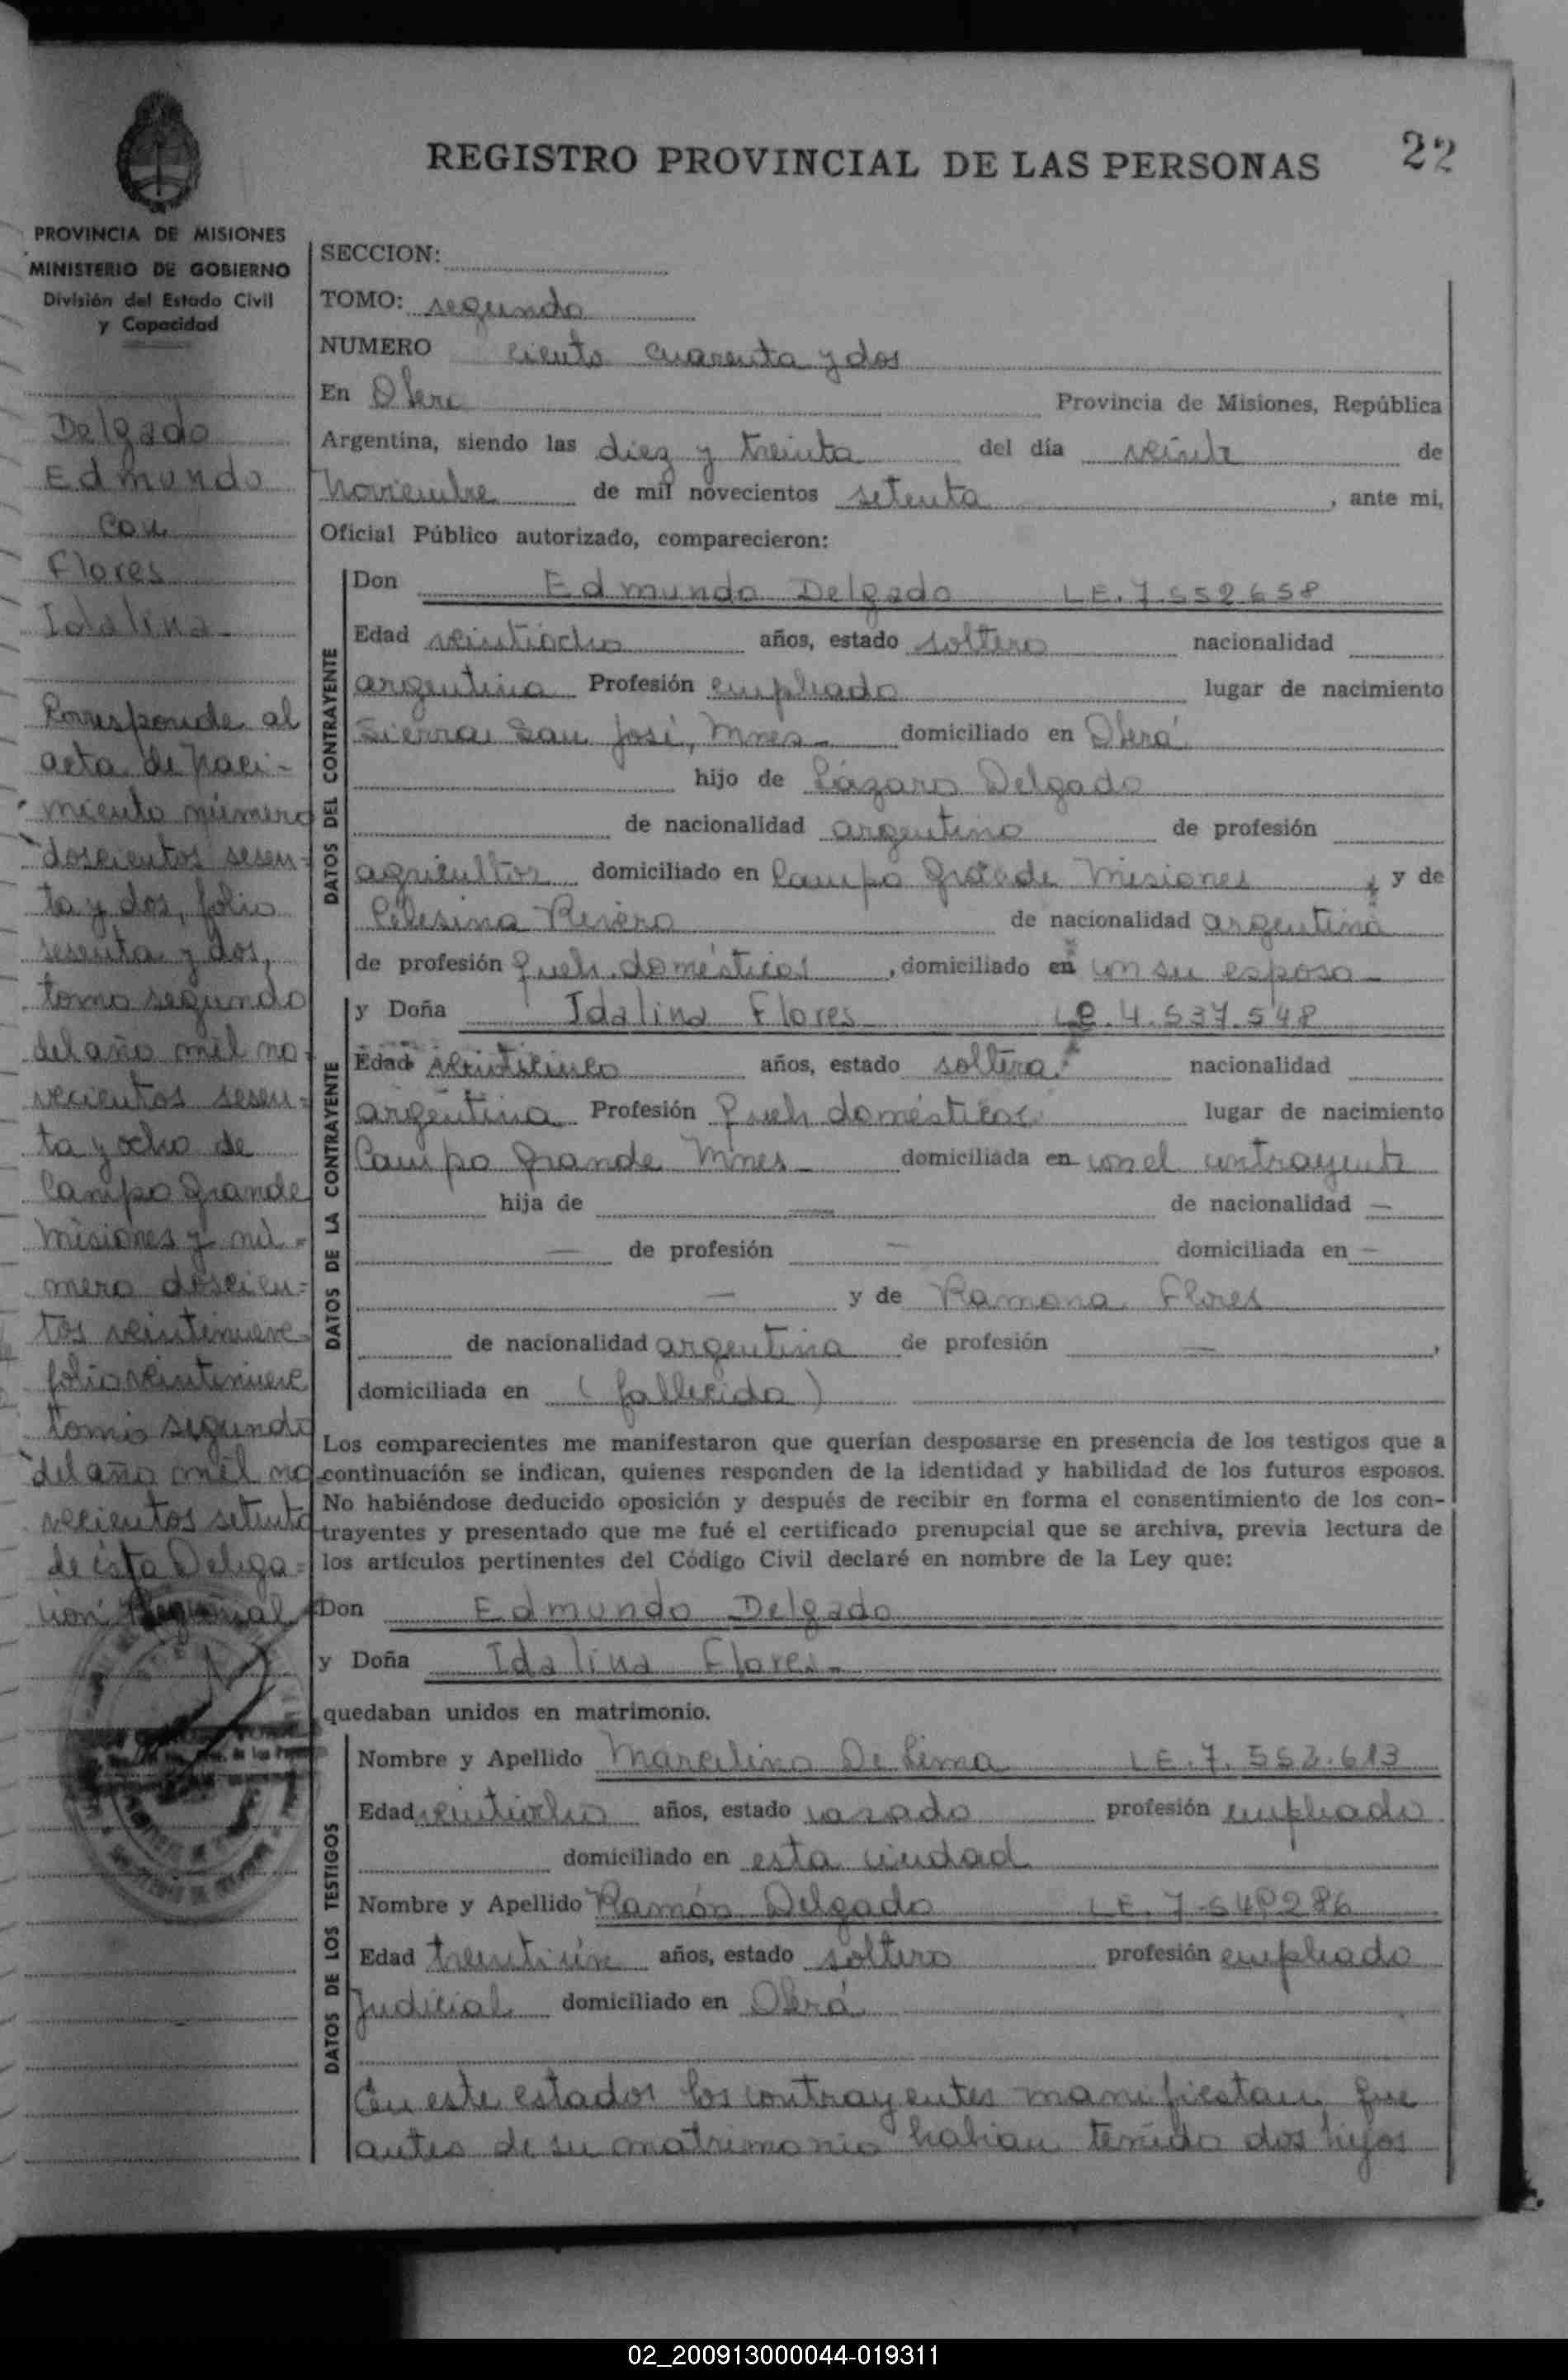 REGISTRO PROVINCIAL DE LAS PERSONAS 22
PROVINCIA DE MISIONES
MINISTERIO DE GOBIERNO
División del Estado Civil
y Capacidad
Delgado
Edmundo
con
Flores
Idalina
Corresponde al
acta de naci-
miento número
doscientos sesen-
ta y dos, folio
sesenta y dos,
tomo segundo
del año mil no-
vecientos sesen-
ta y ocho de
Campo Grande
Misiones y nú-
mero doscien-
tos veintinueve
folio veintinueve
tomo segundo
del año mil no-
vecientos setenta
de ésta Delega-
ción Regional
SECCION:
TOMO: segundo
NUMERO ciento cuarenta y dos
En Oberá Provincia de Misiones, República
Argentina, siendo las diez y treinta del día veinte de
Noviembre de mil novecientos setenta, ante mi,
Oficial Público autorizado, comparecieron:
DATOS DEL CONTRAYENTE
Don Edmundo Delgado LE. 7.552.658
Edad veintiocho años, estado soltero nacionalidad
argentina Profesión empleado lugar de nacimiento
Sierra San José, Mnes- domiciliado en Oberá
hijo de Lázaro Delgado
de nacionalidad argentino de profesión
agricultor domiciliado en Campo Grande Misiones, y de
Celesina Rivero de nacionalidad argentina
de profesión queh. domésticos, domiciliado en con su esposo
DATOS DE LA CONTRAYENTE
y Doña Idalina Flores LC. 4.537.548
Edad veinticinco años, estado soltera nacionalidad
argentina Profesión queh domésticos lugar de nacimiento
Campo Grande Mnes- domiciliada en con el contrayente
hija de — de nacionalidad —
— de profesión — domiciliada en —
— y de Ramona Flores
de nacionalidad argentina de profesión —,
domiciliada en (fallecida)
Los comparecientes me manifestaron que querían desposarse en presencia de los testigos que a
continuación se indican, quienes responden de la identidad y habilidad de los futuros esposos.
No habiéndose deducido oposición y después de recibir en forma el consentimiento de los con-
trayentes y presentado que me fué el certificado prenupcial que se archiva, previa lectura de
los artículos pertinentes del Código Civil declaré en nombre de la Ley que:
Don Edmundo Delgado
y Doña Idalina Flores-
quedaban unidos en matrimonio.
DATOS DE LOS TESTIGOS
Nombre y Apellido Marcelino De Lima LE. 7.552.613
Edad veintiocho años, estado casado profesión empleado
domiciliado en esta ciudad
Nombre y Apellido Ramón Delgado LE. 7.548286
Edad años, estado soltero profesión empleado
Judicial domiciliado en Oberá
En este estado los contrayentes manifiestan que
antes de su matrimonio habían tenido dos hijos
02_200913000044-019311